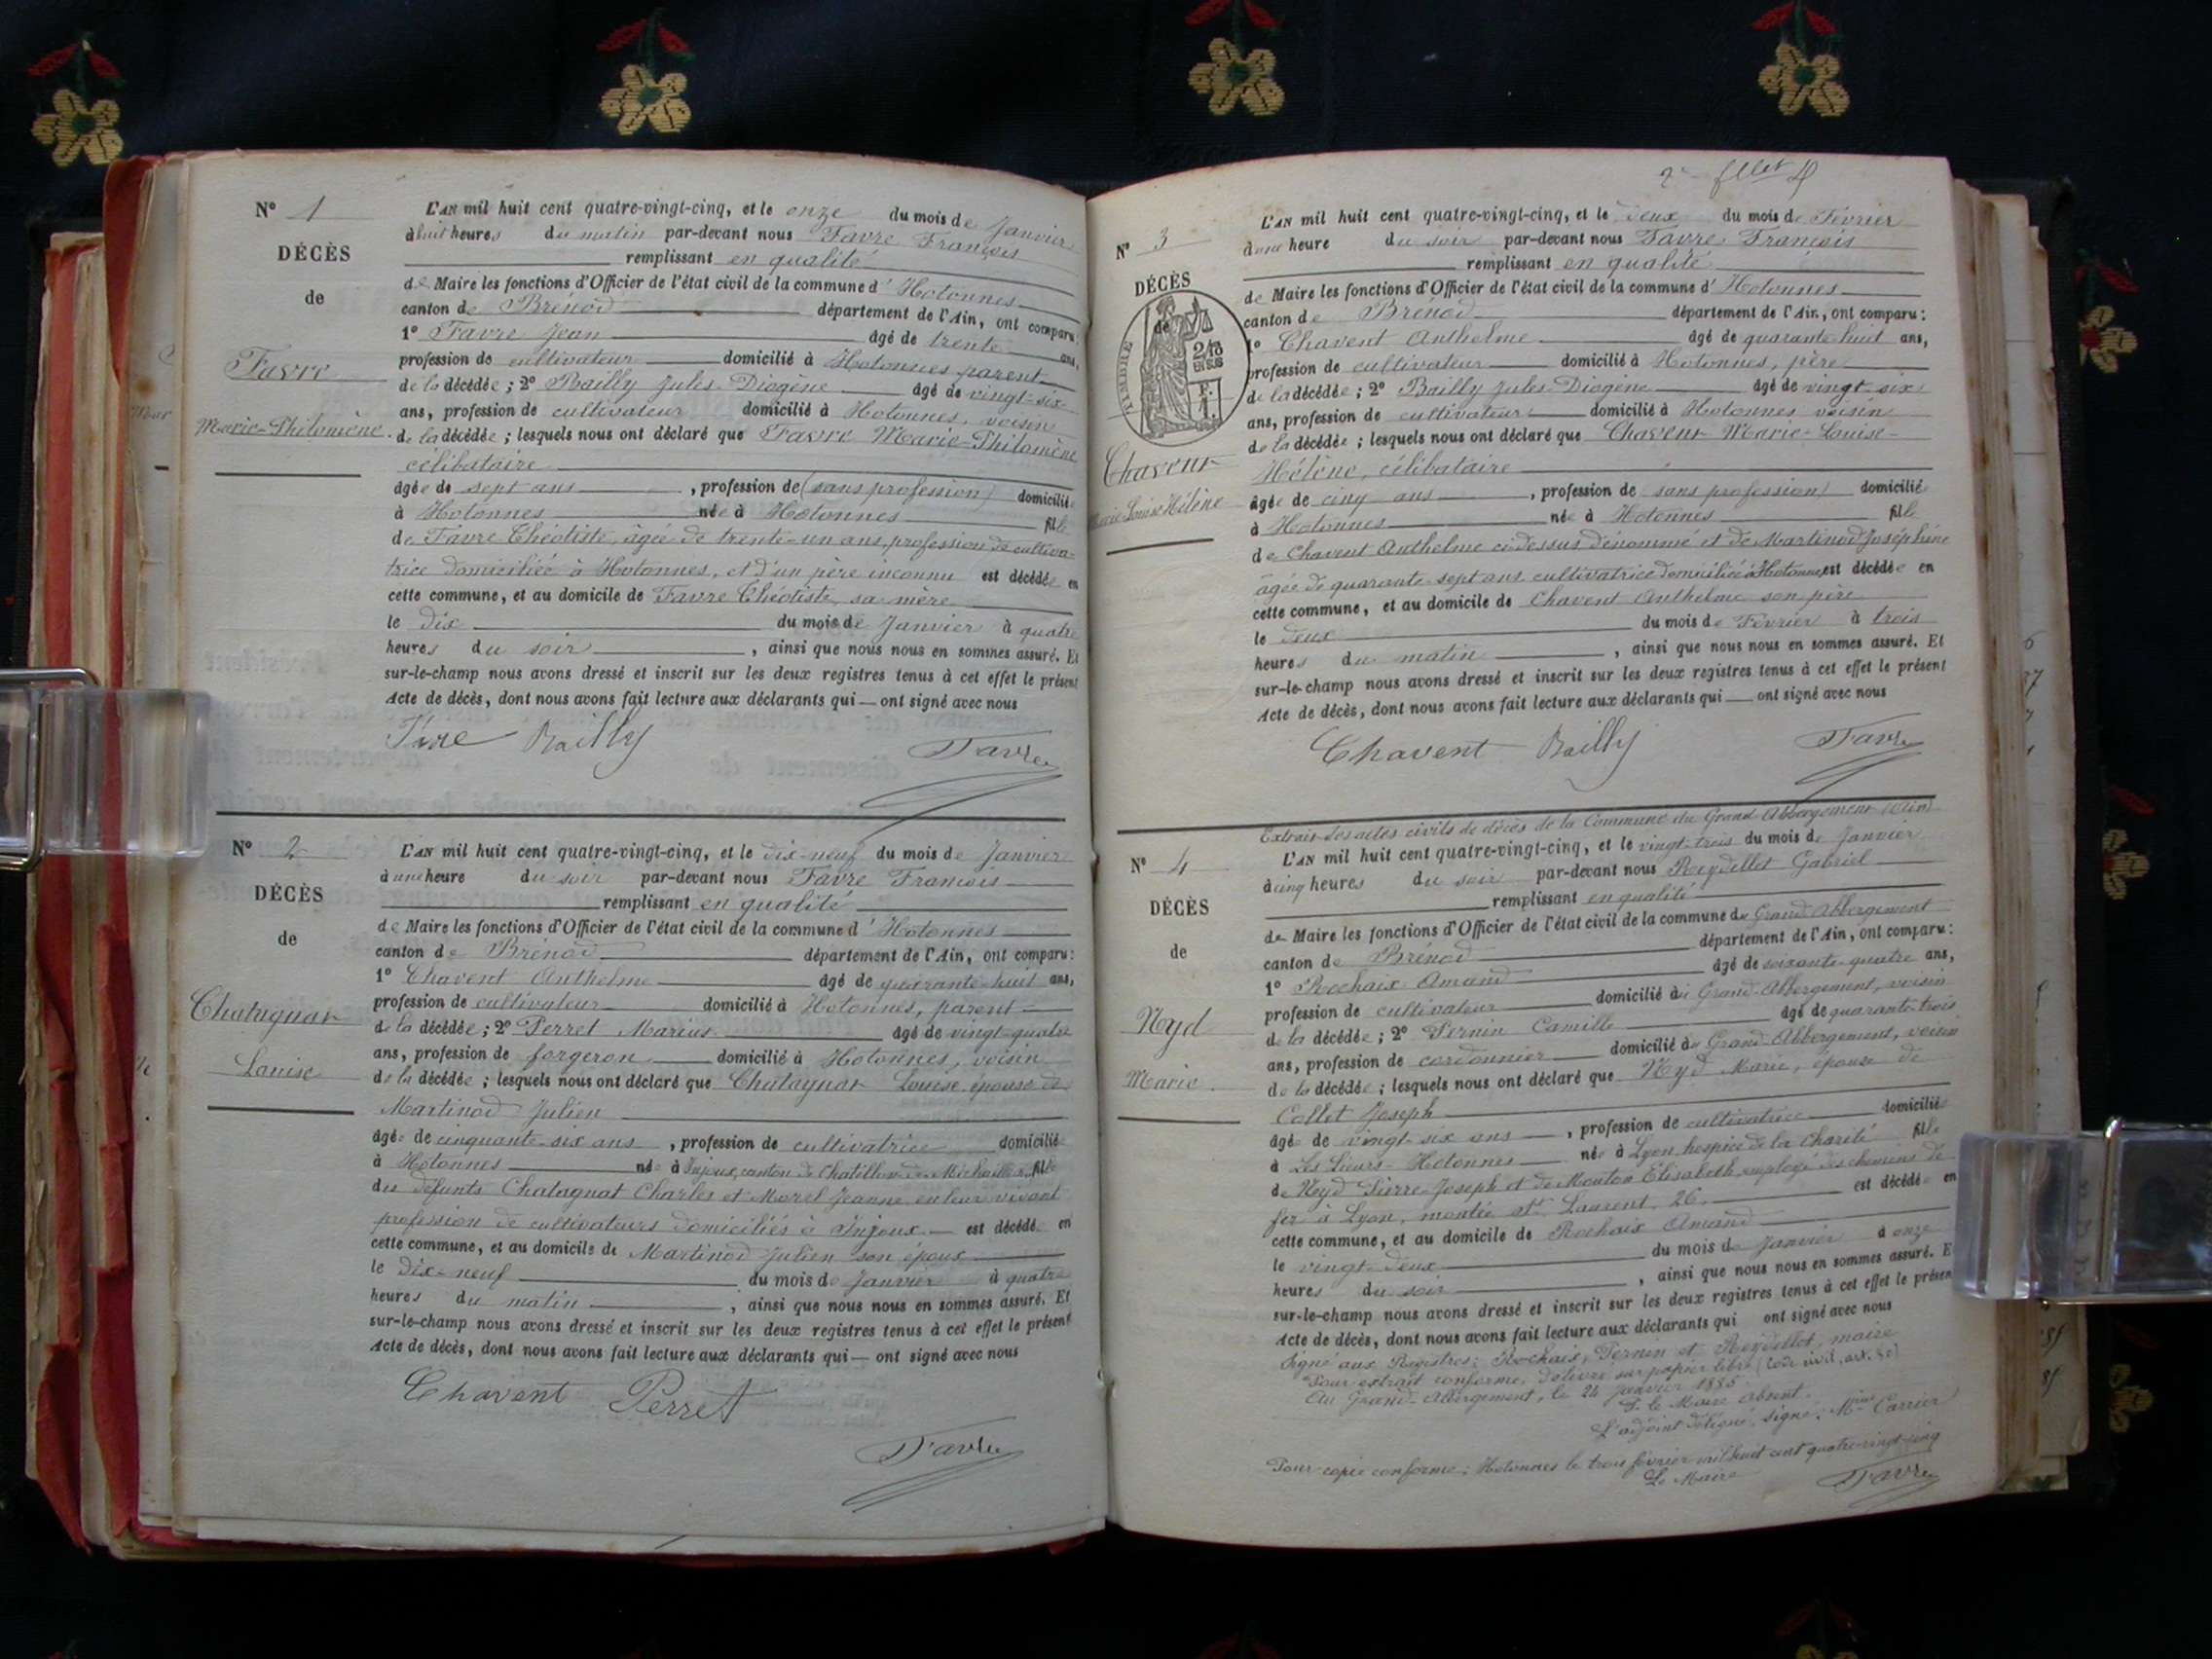 N° 1
DÉCÈS
de
Favre
Marie-Philomène.
L'AN mil huit cent quatre-vingt-cinq, et le onze du mois de Janvier
à huit heures du matin par-devant nous Favre François
remplissant en qualité
de Maire les fonctions d'Officier de l'état civil de la commune d'Hotonnes
canton de Brénod département de l'Ain, ont comparu:
1° Favre Jean âgé de trente ans,
profession de cultivateur domicilié à Hotonnes parent
de la décédée; 2° Bailly Jules-Diogène âgé de vingt-six
ans, profession de cultivateur domicilié à Hotonnes, voisin
de la décédée; lesquels nous ont déclaré que Favre Marie-Philomène
célibataire
âgée de sept ans, profession de (sans profession) domicilié
à Hotonnes née à Hotonnes fille
de Favre Théotiste, âgée de trente-un ans, profession de cultiva-
trice domiciliée à Hotonnes, et d'un père inconnu est décédée en
cette commune, et au domicile de Favre Théotiste, sa mère
le dix du mois de Janvier à quatre
heures du soir, ainsi que nous nous en sommes assuré. Et
sur-le-champ nous avons dressé et inscrit sur les deux registres tenus à cet effet le présent
Acte de décès, dont nous avons fait lecture aux déclarants qui — ont signé avec nous
Bailly Favre
N° 2
DÉCÈS
de
Chatagnat
Louise
L'AN mil huit cent quatre-vingt-cinq, et le dix-neuf du mois de Janvier
à une heure du soir par-devant nous Favre François
remplissant en qualité
de Maire les fonctions d'Officier de l'état civil de la commune d'Hotonnes
canton de Brénod département de l'Ain, ont comparu:
1° Chavent Anthelme âgé de quarante-huit ans,
profession de cultivateur domicilié à Hotonnes, parent
de la décédée; 2° Perret Marius âgé de vingt-quatre
ans, profession de forgeron domicilié à Hotonnes, voisin
de la décédée; lesquels nous ont déclaré que Chatagnat Louise, épouse de
Martinod Julien
âgée de cinquante-six ans, profession de cultivatrice domicilié
à Hotonnes née à Injoux, canton de Chatillon-de-Michaille, fille
des défunts Chatagnat Charles et Morel Jeanne, en leur vivant
profession de cultivateurs domiciliés à Injoux — est décédée en
cette commune, et au domicile de Martinod Julien son époux
le dix-neuf du mois de Janvier à quatre
heures du matin, ainsi que nous nous en sommes assuré. Et
sur-le-champ nous avons dressé et inscrit sur les deux registres tenus à cet effet le présent
Acte de décès, dont nous avons fait lecture aux déclarants qui — ont signé avec nous
Chavent Perret
Favre
N° 3
DÉCÈS
de
TIMBRE
Chavent
Marie-Louise Hélène
L'AN mil huit cent quatre-vingt-cinq, et le deux du mois de Février
à une heure du soir par-devant nous Favre François
remplissant en qualité
de Maire les fonctions d'Officier de l'état civil de la commune d'Hotonnes
canton de Brénod département de l'Ain, ont comparu:
1° Chavent Anthelme âgé de quarante huit ans,
profession de cultivateur domicilié à Hotonnes, père
de la décédée; 2° Bailly Jules-Diogène âgé de vingt-six
ans, profession de cultivateur domicilié à Hotonnes voisin
de la décédée; lesquels nous ont déclaré que Chavent Marie-Louise-
Hélène, célibataire
âgée de cinq ans, profession de sans profession) domicilié
à Hotonnes née à Hotonnes fille
de Chavent Anthelme ci-dessus dénommé et de Martinod Joséphine
âgée de quarante-sept ans, cultivatrice domiciliée à Hotonnes, est décédée en
cette commune, et au domicile de Chavent Anthelme son père
le deux du mois de Février à trois
heures du matin, ainsi que nous nous en sommes assuré. Et
sur-le-champ nous avons dressé et inscrit sur les deux registres tenus à cet effet le présent
Acte de décès, dont nous avons fait lecture aux déclarants qui — ont signé avec nous
Chavent Bailly Favre
N° 4
DÉCÈS
de
Neyd
Marie
Extrait des actes civils de décès de la Commune du Grand-Abbergement (Ain)
L'AN mil huit cent quatre-vingt-cinq, et le vingt-trois du mois de Janvier
à cinq heures du soir par-devant nous Reydellet Gabriel
remplissant en qualité
de Maire les fonctions d'Officier de l'état civil de la commune du Grand Abbergement
canton de Brénod département de l'Ain, ont comparu:
1° Rochaix Amand âgé de soixante-quatre ans,
profession de cultivateur domicilié au Grand-Abbergement, voisin
de la décédée; 2° Pernin Camille âgé de quarante-trois
ans, profession de cordonnier domicilié au Grand-Abbergement, voisin
de la décédée; lesquels nous ont déclaré que Neyd Marie, épouse de
Collet Joseph
âgée de vingt-six ans, profession de cultivatrice domicilié
à Les Lieurs-Hotonnes née à Lyon, hospice de la Charité fille
de Neyd Pierre-Joseph et de Mouton Elisabeth, employé des chemins de
fer à Lyon, montée St Laurent, 26, est décédée en
cette commune, et au domicile de Rochaix Amand
le vingt-deux du mois de Janvier à onze
heures du soir, ainsi que nous nous en sommes assuré. E
sur-le-champ nous avons dressé et inscrit sur les deux registres tenus à cet effet le présen
Acte de décès, dont nous avons fait lecture aux déclarants qui ont signé avec nous
Signé aux Registres: Rochaix, Pernin et Reydellet, maire
Pour extrait conforme, délivré sur papier libre (Code civil, art. 80)
Au Grand-Abbergement, le 24 janvier 1885
P. le Maire absent.
L'adjoint délégué, signé: Carrier
Pour copie conforme: Hotonnes le trois février mil huit cent quatre-vingt-cinq
Le Maire Favre